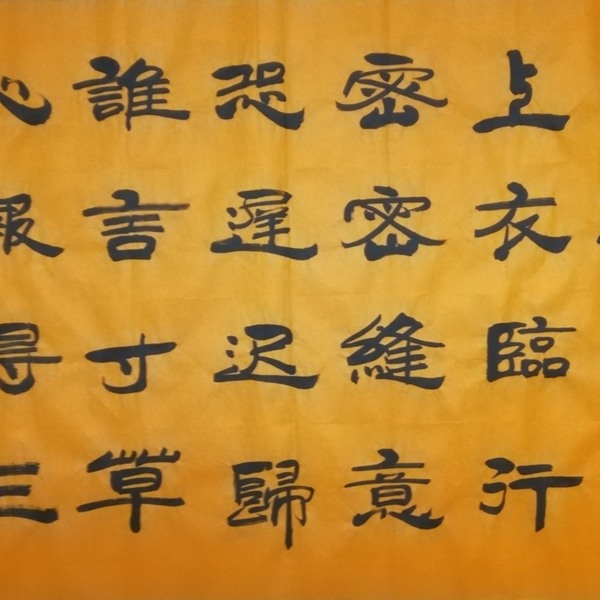 上衣臨行
密密縫意
恐遲迟歸
誰言寸草
心報得三